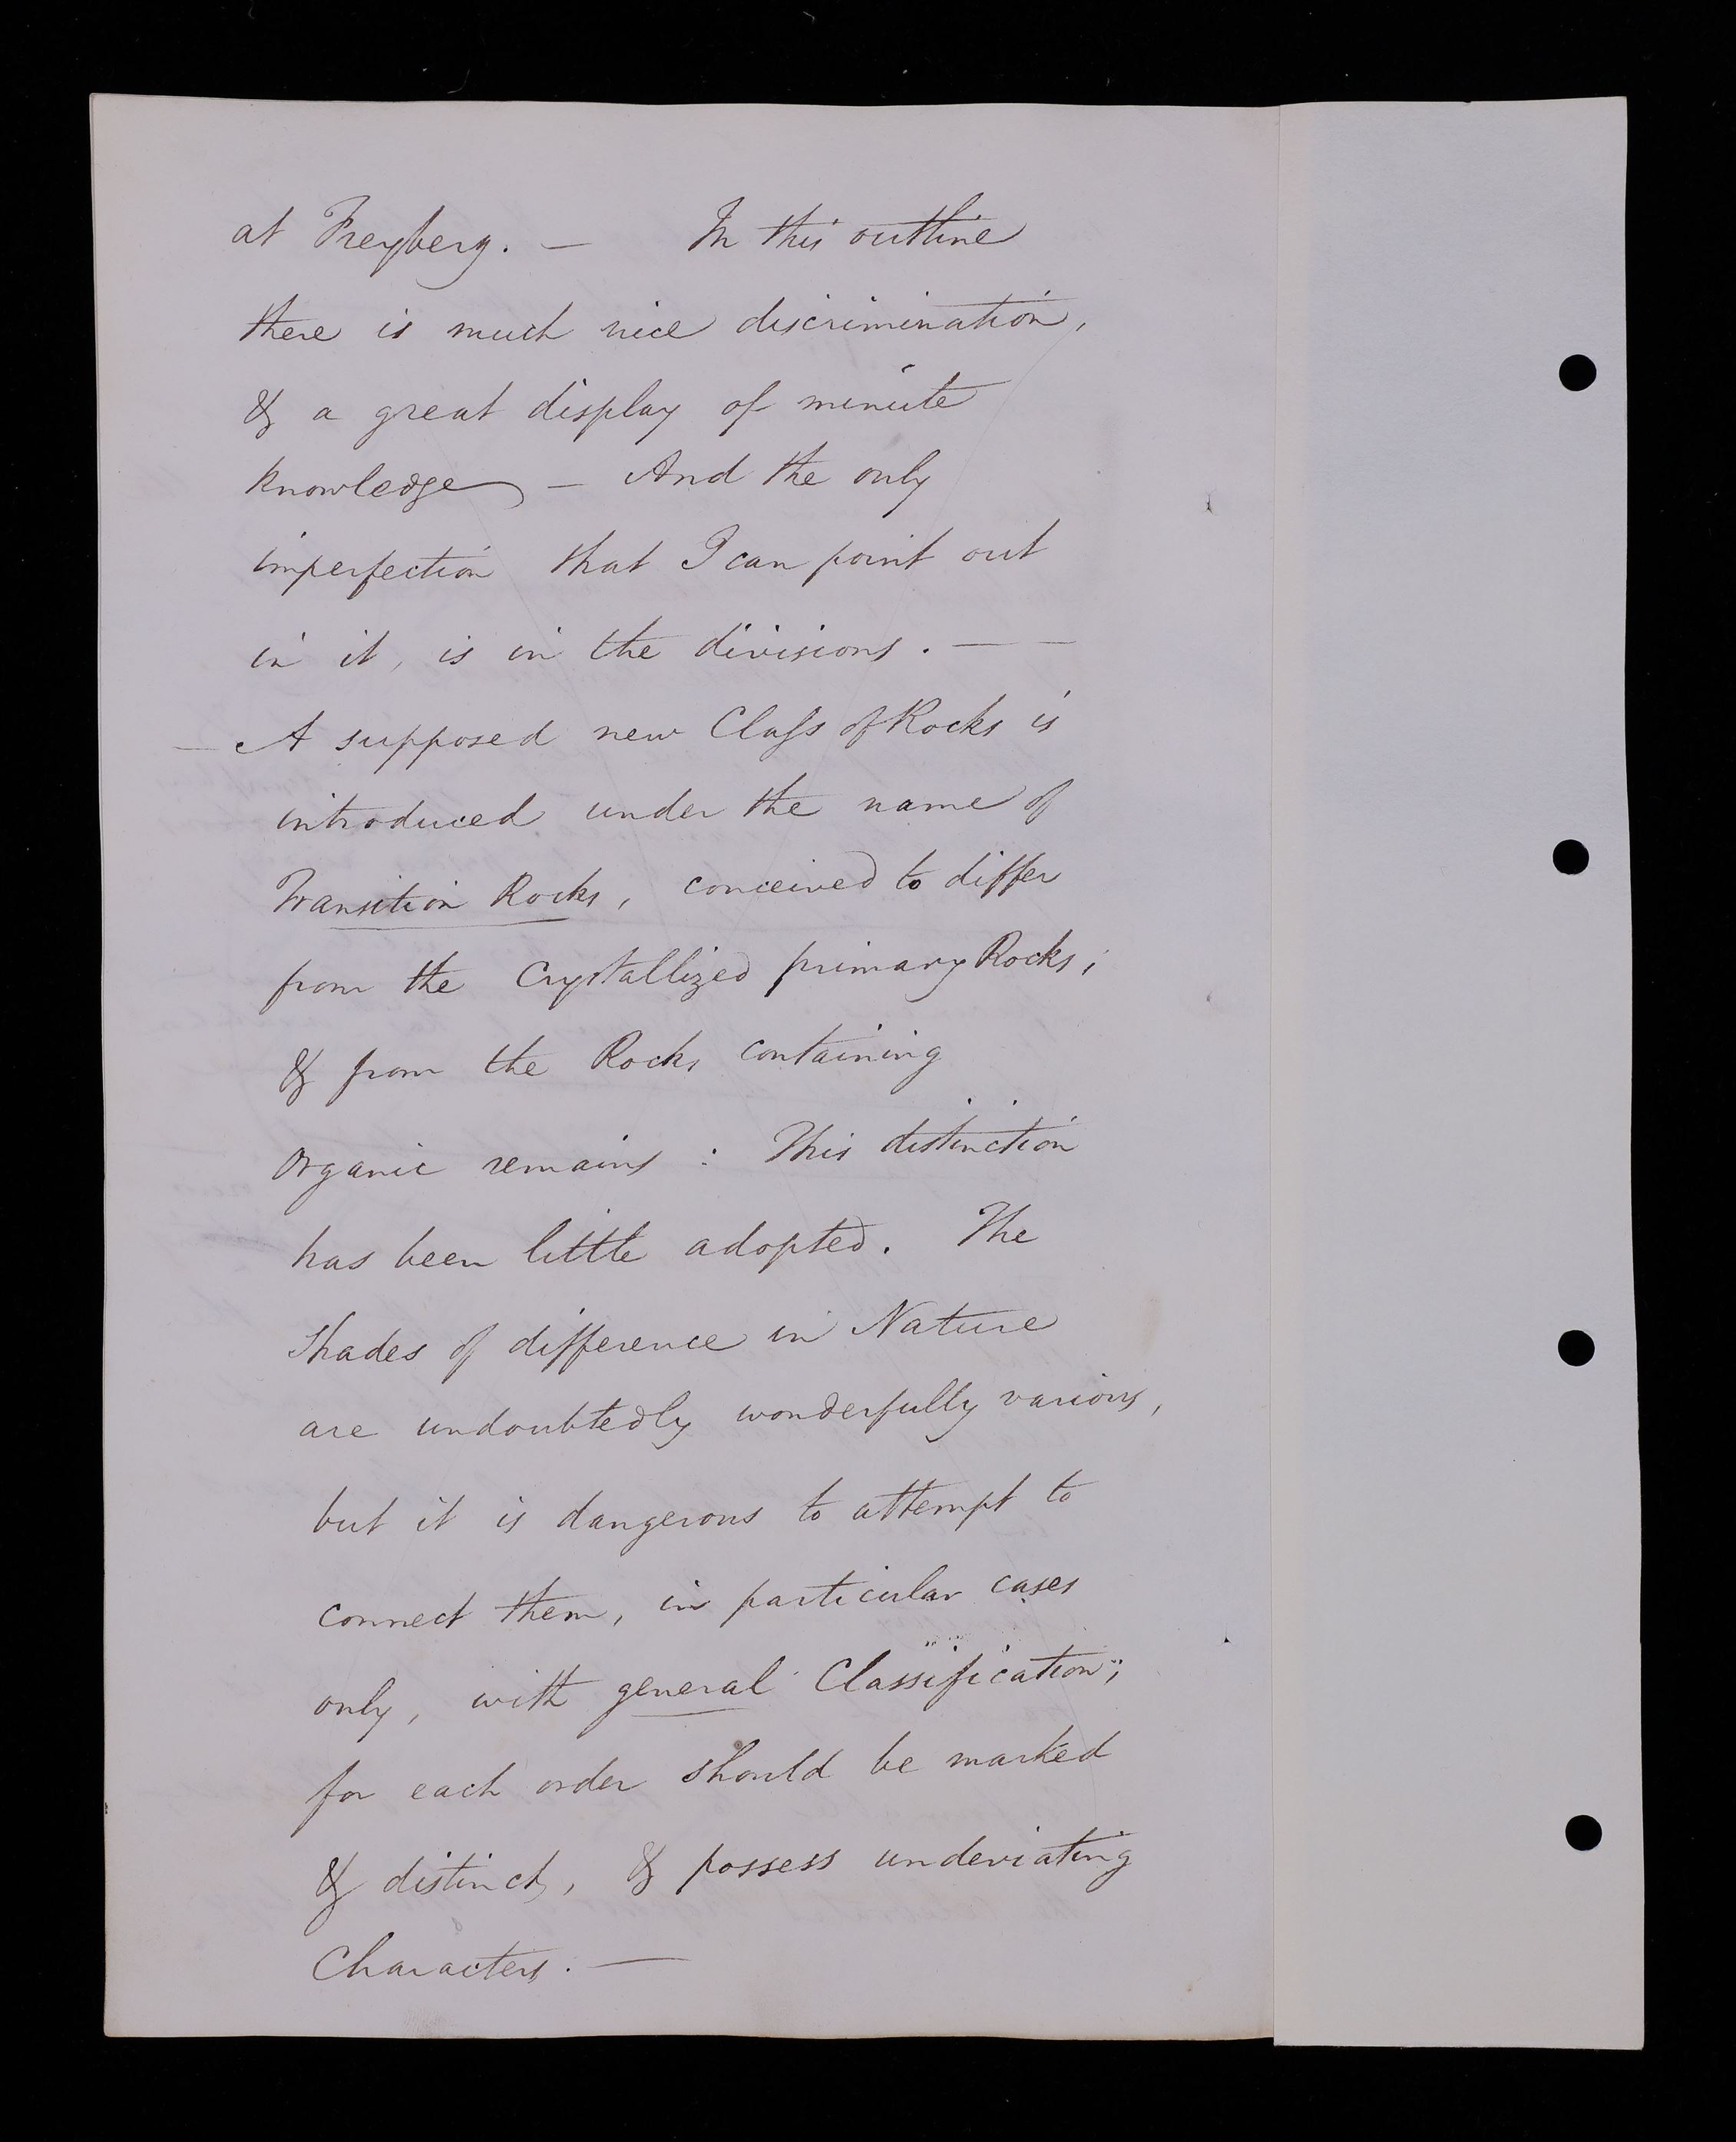 at Freyberg. — In this outline
there is much nice discrimination,
& a great display of minute
knowledge — And the only
imperfection that I can point out
in it, is in the divisions. — —
— A supposed new Claſs of Rocks is
introduced under the name of
Transition Rocks, conceived to differ
from the Crystallized primary Rocks,
& from the Rocks containing
organic remains : This distinction
has been little adopted. The
shades of difference in Nature
are undoubtedly wonderfully various,
but it is dangerous to attempt to
connect them, in particular cases
only, with general "Classification";
for each order should be marked
& distinct, & possess undeviating
Characters. —